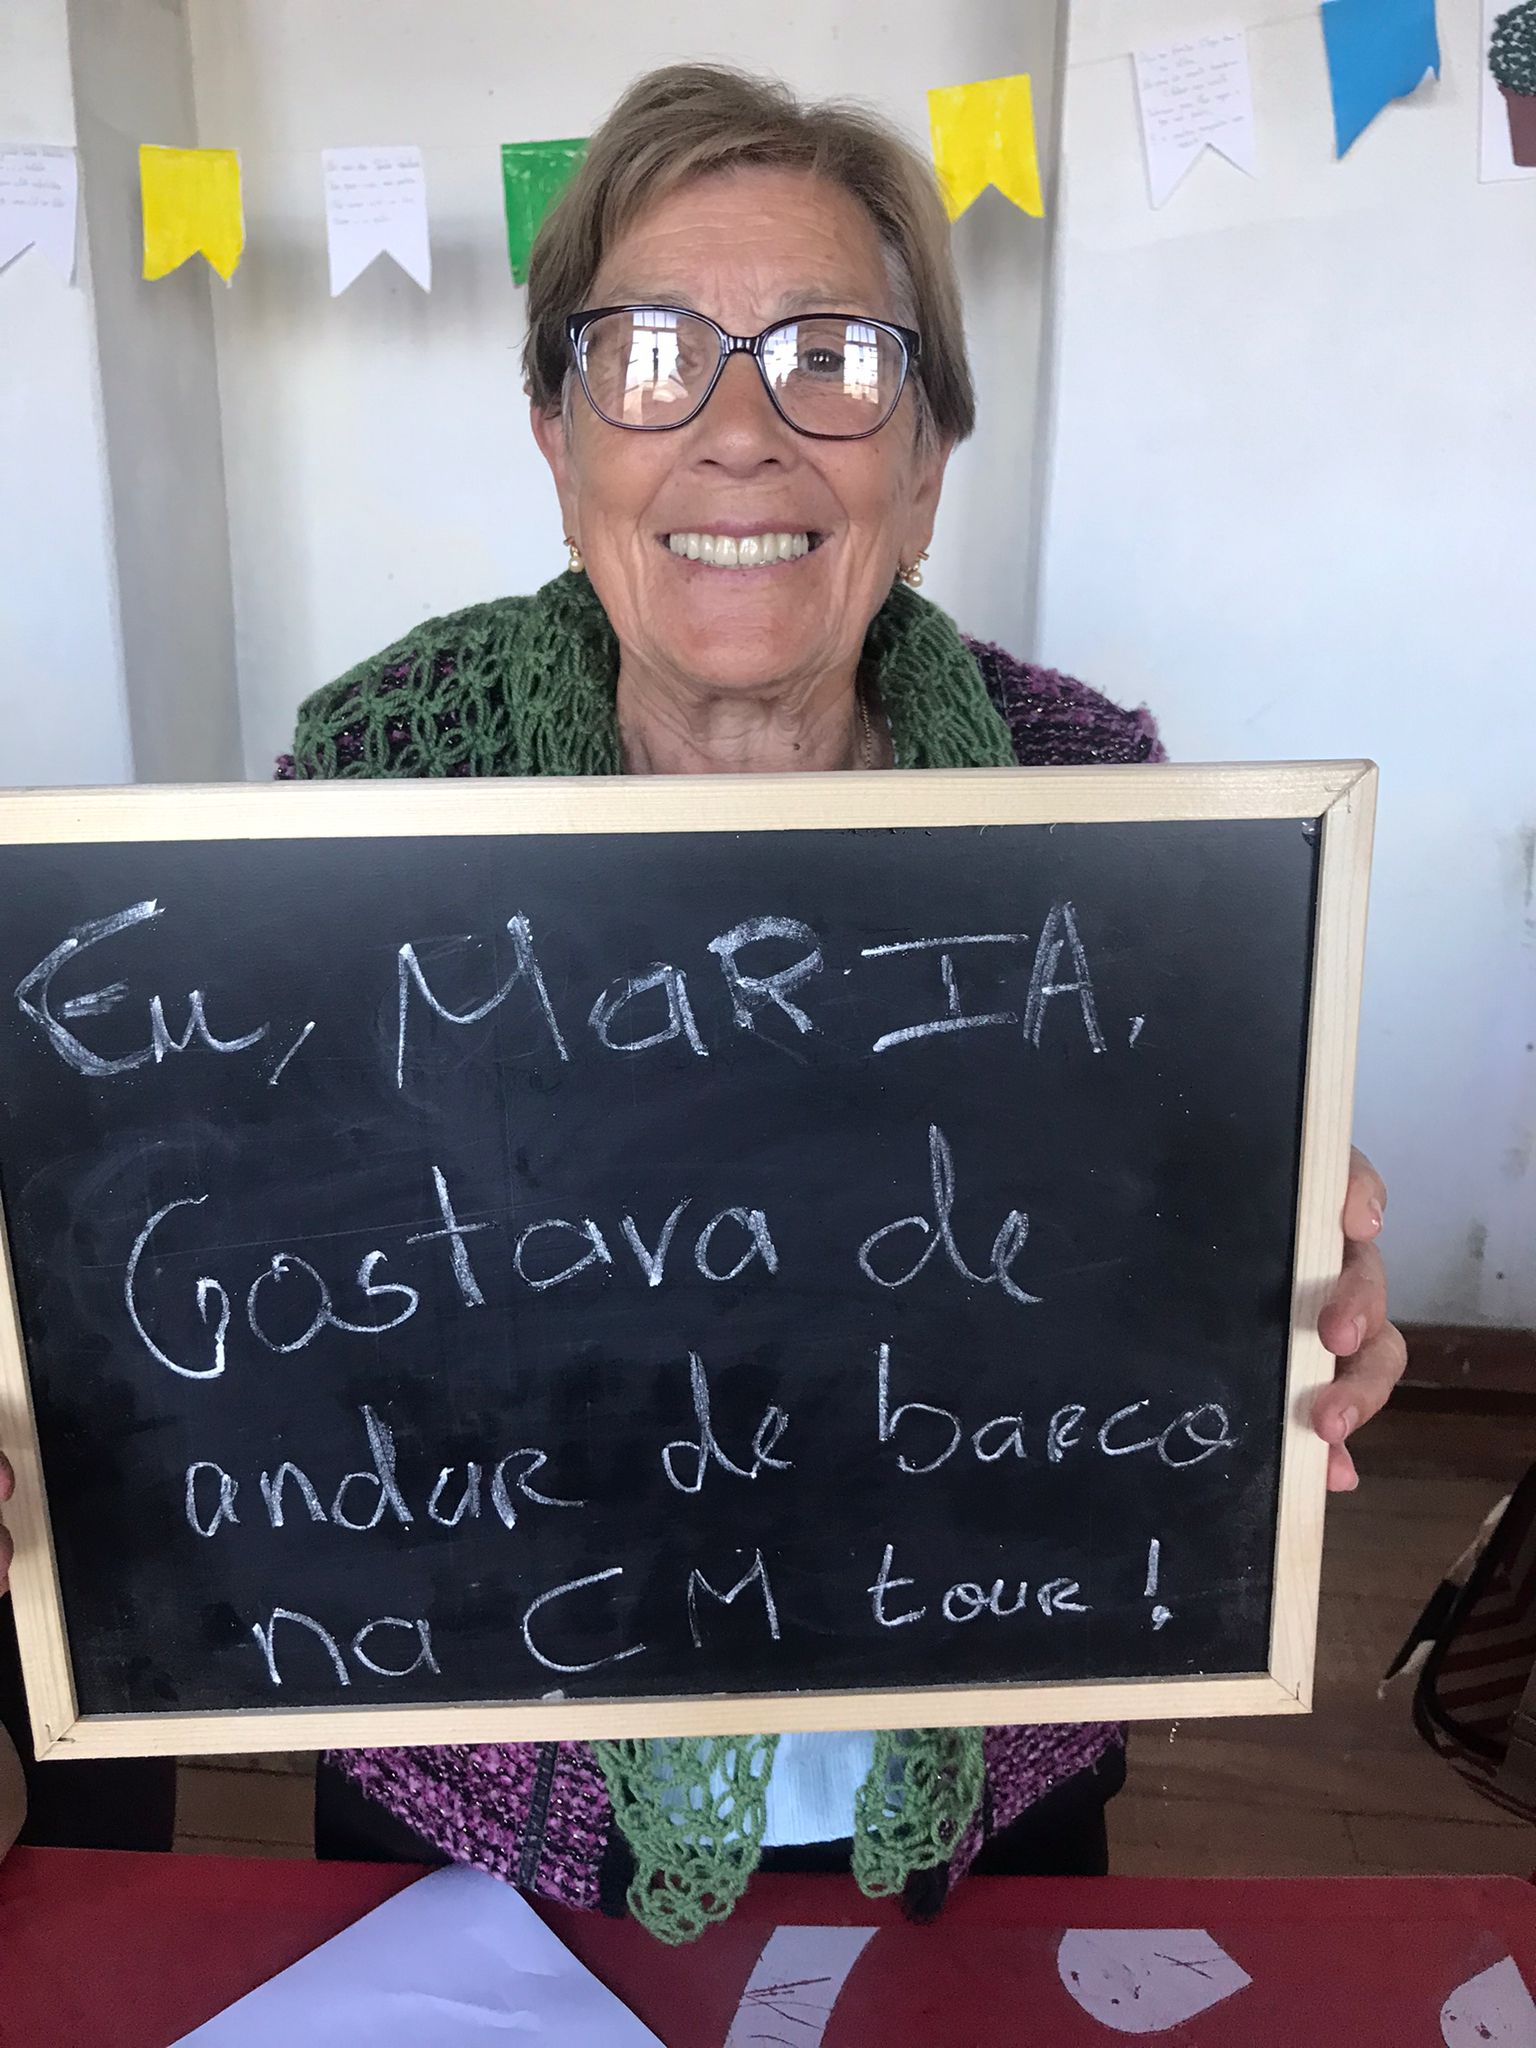 Eu, MaRIA,
Gostava de
andar de barco
na CM tour!